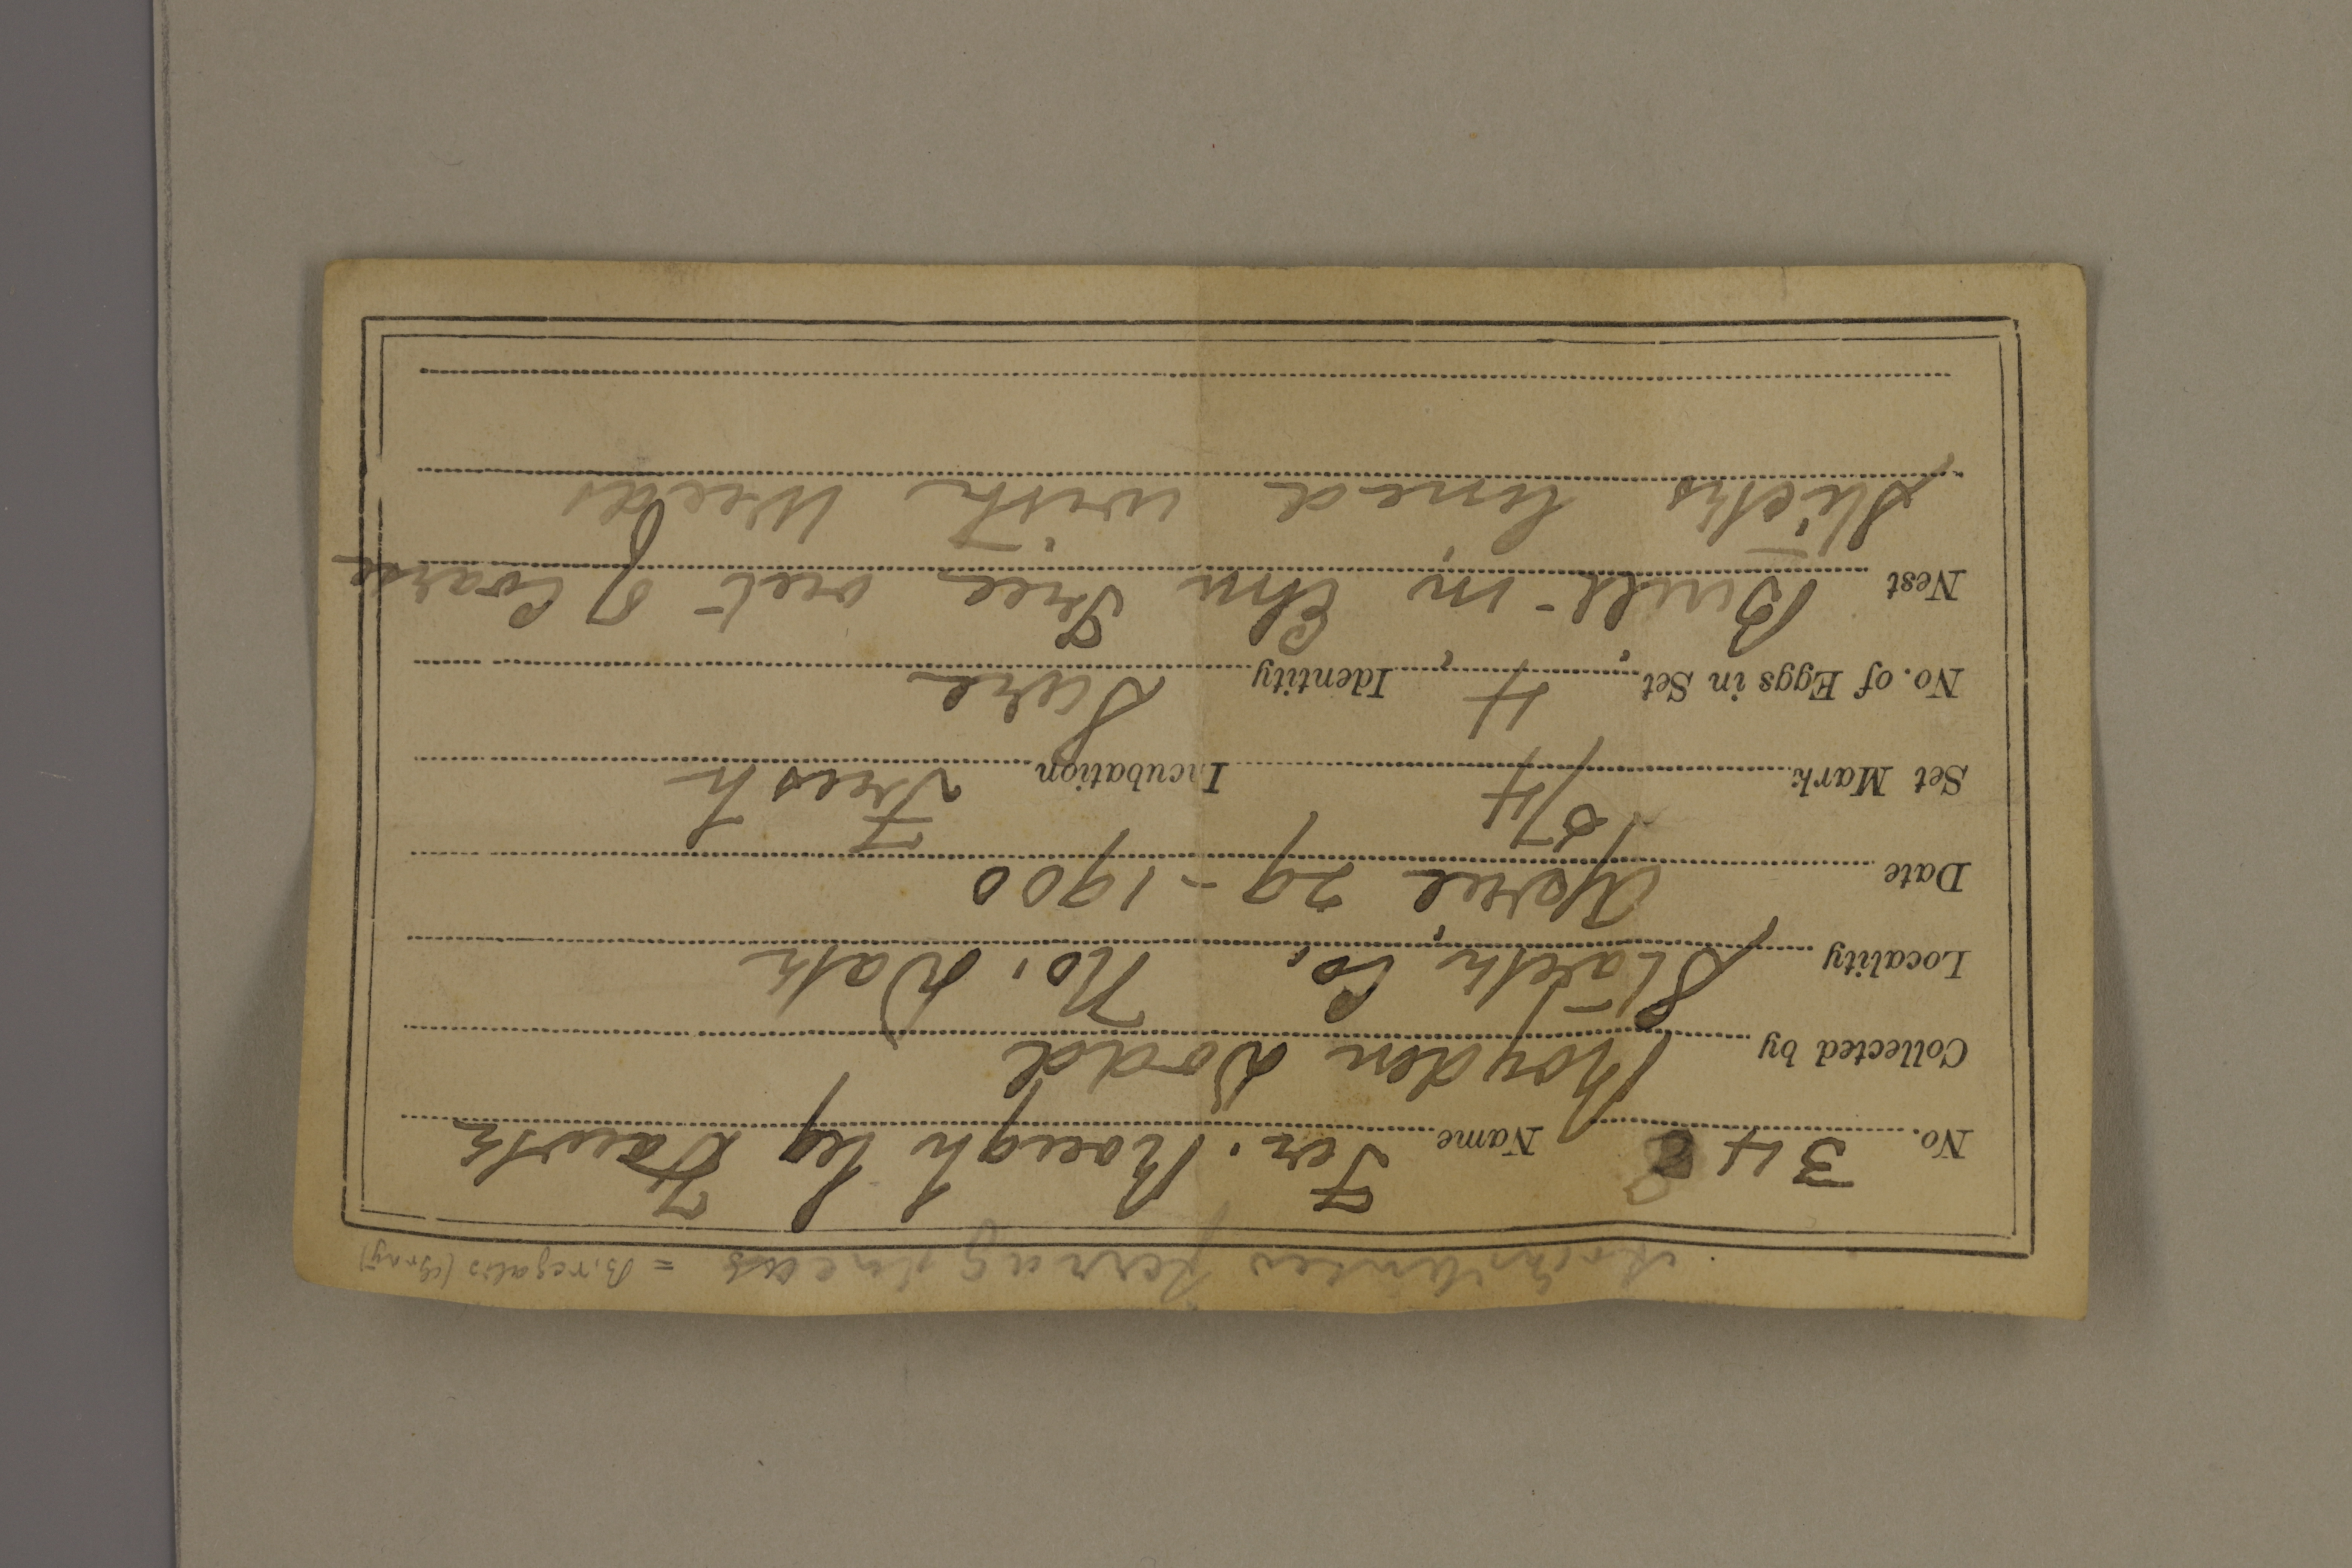 Archibuteo ferrugineus = B. regalis (Gray)
No. 348 Name Fer. Rough leg Hawk
Collected by Royden Dodd
Locality Stark Co. No. Dak
Date April 29 - 1900
Set Mark 15/4 Incubation Fresh
No. of Eggs in Set 4 Identity Sure
Nest Built in Elm Tree out of Coarse
sticks lined with Weeds